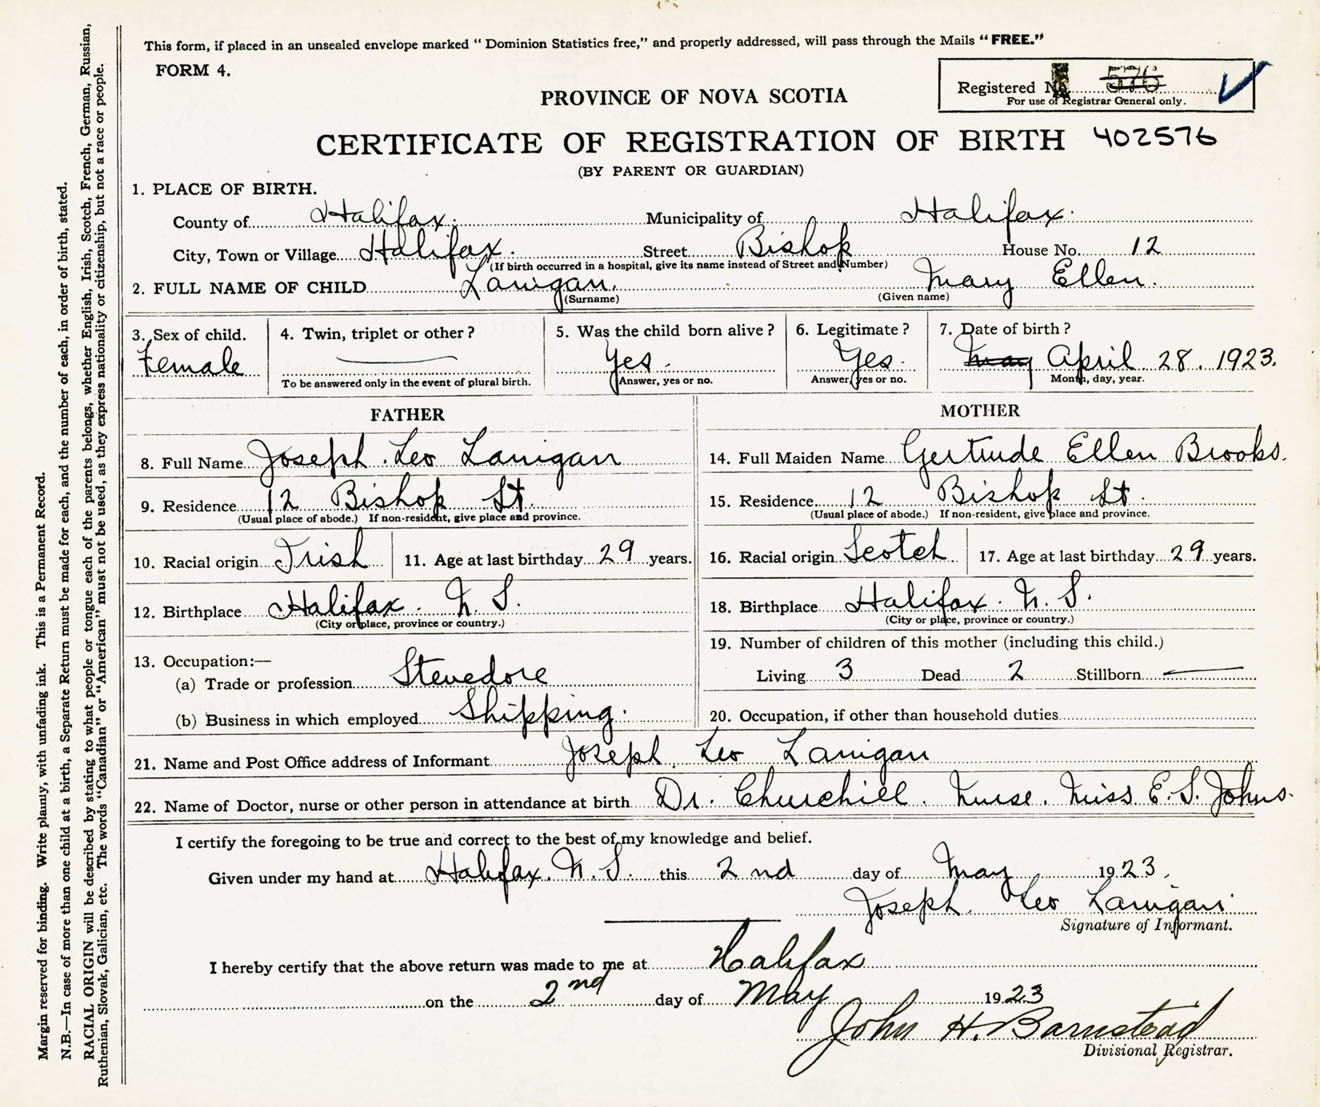 This form, if placed in an unsealed envelope marked “ Dominion Statistics free,” and properly addressed, will pass through the Mails “ FREE.”
FORM 4.
Registered No. 576
For use of Registrar General only.
PROVINCE OF NOVA SCOTIA
CERTIFICATE OF REGISTRATION OF BIRTH 402576
(BY PARENT OR GUARDIAN)
1. PLACE OF BIRTH.
County of Halifax. Municipality of Halifax.
City, Town or Village Halifax. Street Bishop House No. 12
(If birth occurred in a hospital, give its name instead of Street and Number)
2. FULL NAME OF CHILD Lanigan. Mary Ellen.
(Surname) (Given name)
3. Sex of child. 4. Twin, triplet or other ? 5. Was the child born alive ? 6. Legitimate ? 7. Date of birth ?
Female Yes. Yes. May April 28. 1923.
To be answered only in the event of plural birth. Answer, yes or no. Answer, yes or no. Month, day, year.
FATHER MOTHER
8. Full Name Joseph. Leo Lanigan 14. Full Maiden Name Gertrude Ellen Brooks.
9. Residence 12 Bishop St. 15. Residence 12 Bishop St.
(Usual place of abode.) If non-resident, give place and province. (Usual place of abode.) If non-resident, give place and province.
10. Racial origin Irish 11. Age at last birthday 29 years. 16. Racial origin Scotch 17. Age at last birthday 29 years.
12. Birthplace Halifax. N. S. 18. Birthplace Halifax. N. S.
(City or place, province or country.) (City or place, province or country.)
13. Occupation:— 19. Number of children of this mother (including this child.)
(a) Trade or profession Stevedore Living 3 Dead 2 Stillborn —
(b) Business in which employed Shipping. 20. Occupation, if other than household duties
21. Name and Post Office address of Informant Joseph. Leo Lanigan
22. Name of Doctor, nurse or other person in attendance at birth Dr. Churchill. Nurse. Miss. E. S. Johns.
I certify the foregoing to be true and correct to the best of my knowledge and belief.
Given under my hand at Halifax. N. S. this 2 nd day of May 1923.
Joseph. Leo Lanigan.
Signature of Informant.
I hereby certify that the above return was made to me at Halifax
on the 2nd day of May 1923
John H. Barnstead
Divisional Registrar.
Margin reserved for binding. Write plainly, with unfading ink. This is a Permanent Record.
N.B.—In case of more than one child at a birth, a Separate Return must be made for each, and the number of each, in order of birth, stated.
RACIAL ORIGIN will be described by stating to what people or tongue each of the parents belongs, whether English, Irish, Scotch, French, German, Russian,
Ruthenian, Slovak, Galician, etc. The words “Canadian” or “American” must not be used, as they express nationality or citizenship, but not a race or people.